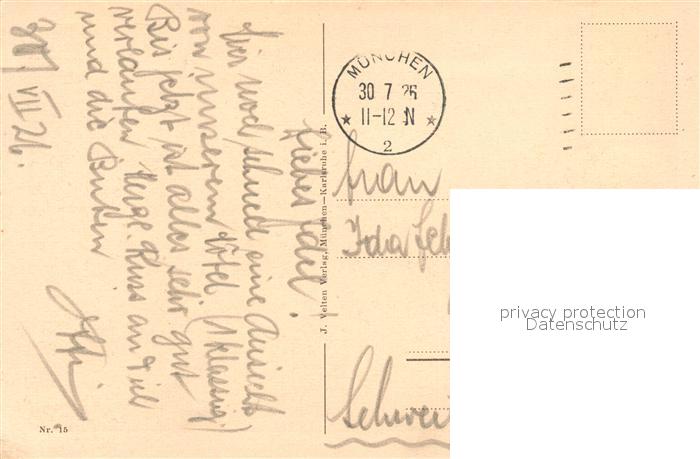 30. VII 26.
Liebes
Hier noch schnell eine Ansicht
von unserem Hôtel (klassig!)
Bis jetzt ist alles sehr gut
verlaufen. Herzl. Kuss an
und die Buben
J. Velten Verlag, München—Karlsruhe i. B.
Nr. 15
MÜNCHEN
30 7 26
11-12 N
2
Frau
Ida
Schwei
privacy protection
Datenschutz